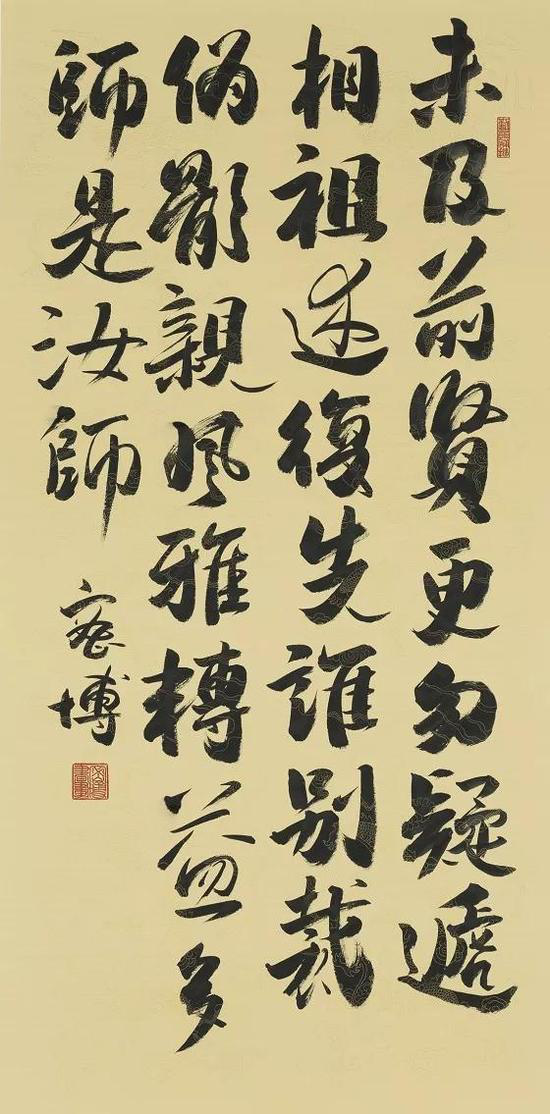 未及前賢更勿疑遞
相祖述復先誰別裁
偽體親風雅轉益多
師是汝師
博